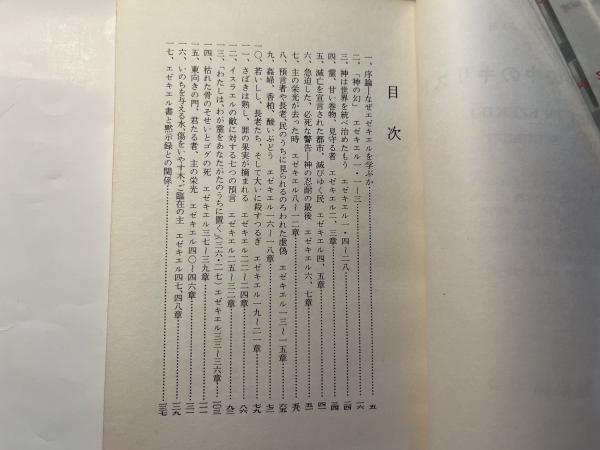 目次
一、序論―なぜエゼキエルを学ぶか……五
二、「神の幻」 エゼキエル一・一～三……一六
三、神は世界を統べ治めたもう エゼキエル一・四～二八……二四
四、霊、甘い巻物、見守る者 エゼキエル二、三章……三四
五、滅亡を宣言された都市、滅びゆく民 エゼキエル四、五章……四一
六、急迫した、必死な警告・神の忍耐の最後 エゼキエル六、七章……五一
七、主の栄光が去った時 エゼキエル八～一二章……五八
八、預言者や長老、民のうちに見られるのろわれた虚偽 エゼキエル一三～一五章……六五
九、姦婦、香柏、酸いぶどう エゼキエル一六～一八章……七二
一〇、若いしし、長老たち、そして大いに殺すつるぎ エゼキエル一九～二一章……七九
一一、さばきは熟し、罪の果実が摘まれる エゼキエル二二～二四章……八六
一二、イスラエルの敵に対する七つの預言 エゼキエル二五～三二章……九三
一三、「わたしは、わが霊をあなたがたのうちに置く」(三六・二七) エゼキエル三三～三六章……一〇三
一四、枯れた骨のそせいとゴグの死 エゼキエル三七～三九章……
一五、東向きの門、君たる者、主の栄光 エゼキエル四〇～四六章……
一六、いのちを与える水、傷をいやす木、ご臨在の主 エゼキエル四七、四八章……
一七、エゼキエル書と黙示録との関係……